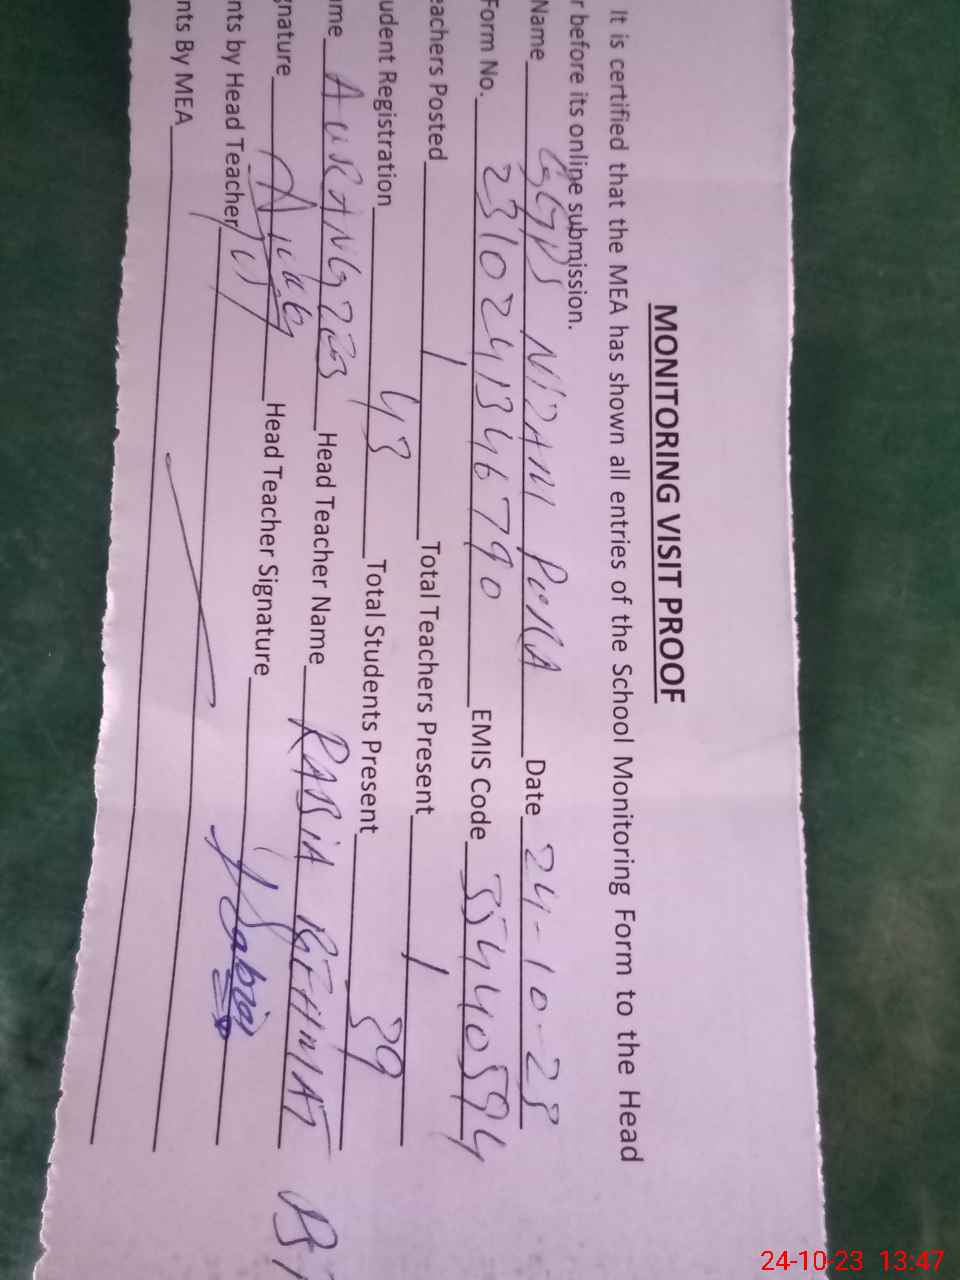 MONITORING VISIT PROOF
It is certified that the MEA has shown all entries of the School Monitoring Form to the Head
r before its online submission.
Name GGPS NIZAMI PURA Date 24-10-23
Form No. 2310241346790 EMIS Code 35440594
eachers Posted 1 Total Teachers Present 1
udent Registration 43 Total Students Present 39
me AURANGZEB Head Teacher Name RABIA REHMAT
gnature Head Teacher Signature
nts by Head Teacher
nts By MEA
24-10-23 13:47